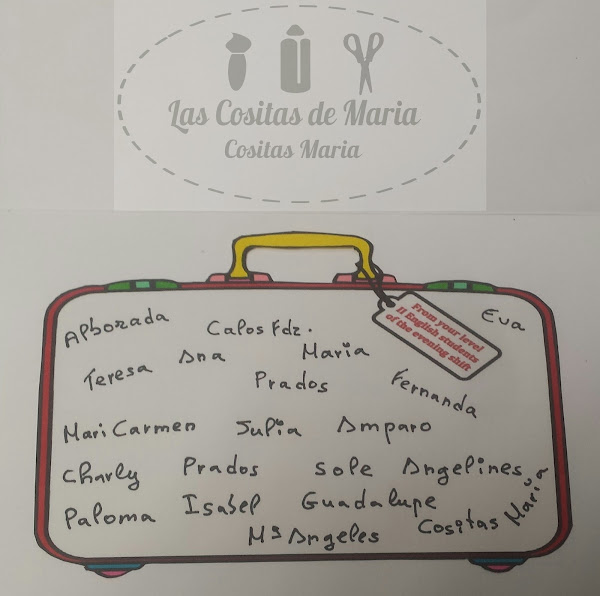 Las Cositas de Maria
Cositas Maria
From your level
II English students
of the evening shift
Eva
Alborada Calos Fdz.
Ana Maria
Teresa Prados Fernanda
Mari Carmen Julia Amparo
Charly Prados Sole Angelines
Paloma Isabel Guadalupe
Mª Angeles Cositas Maria